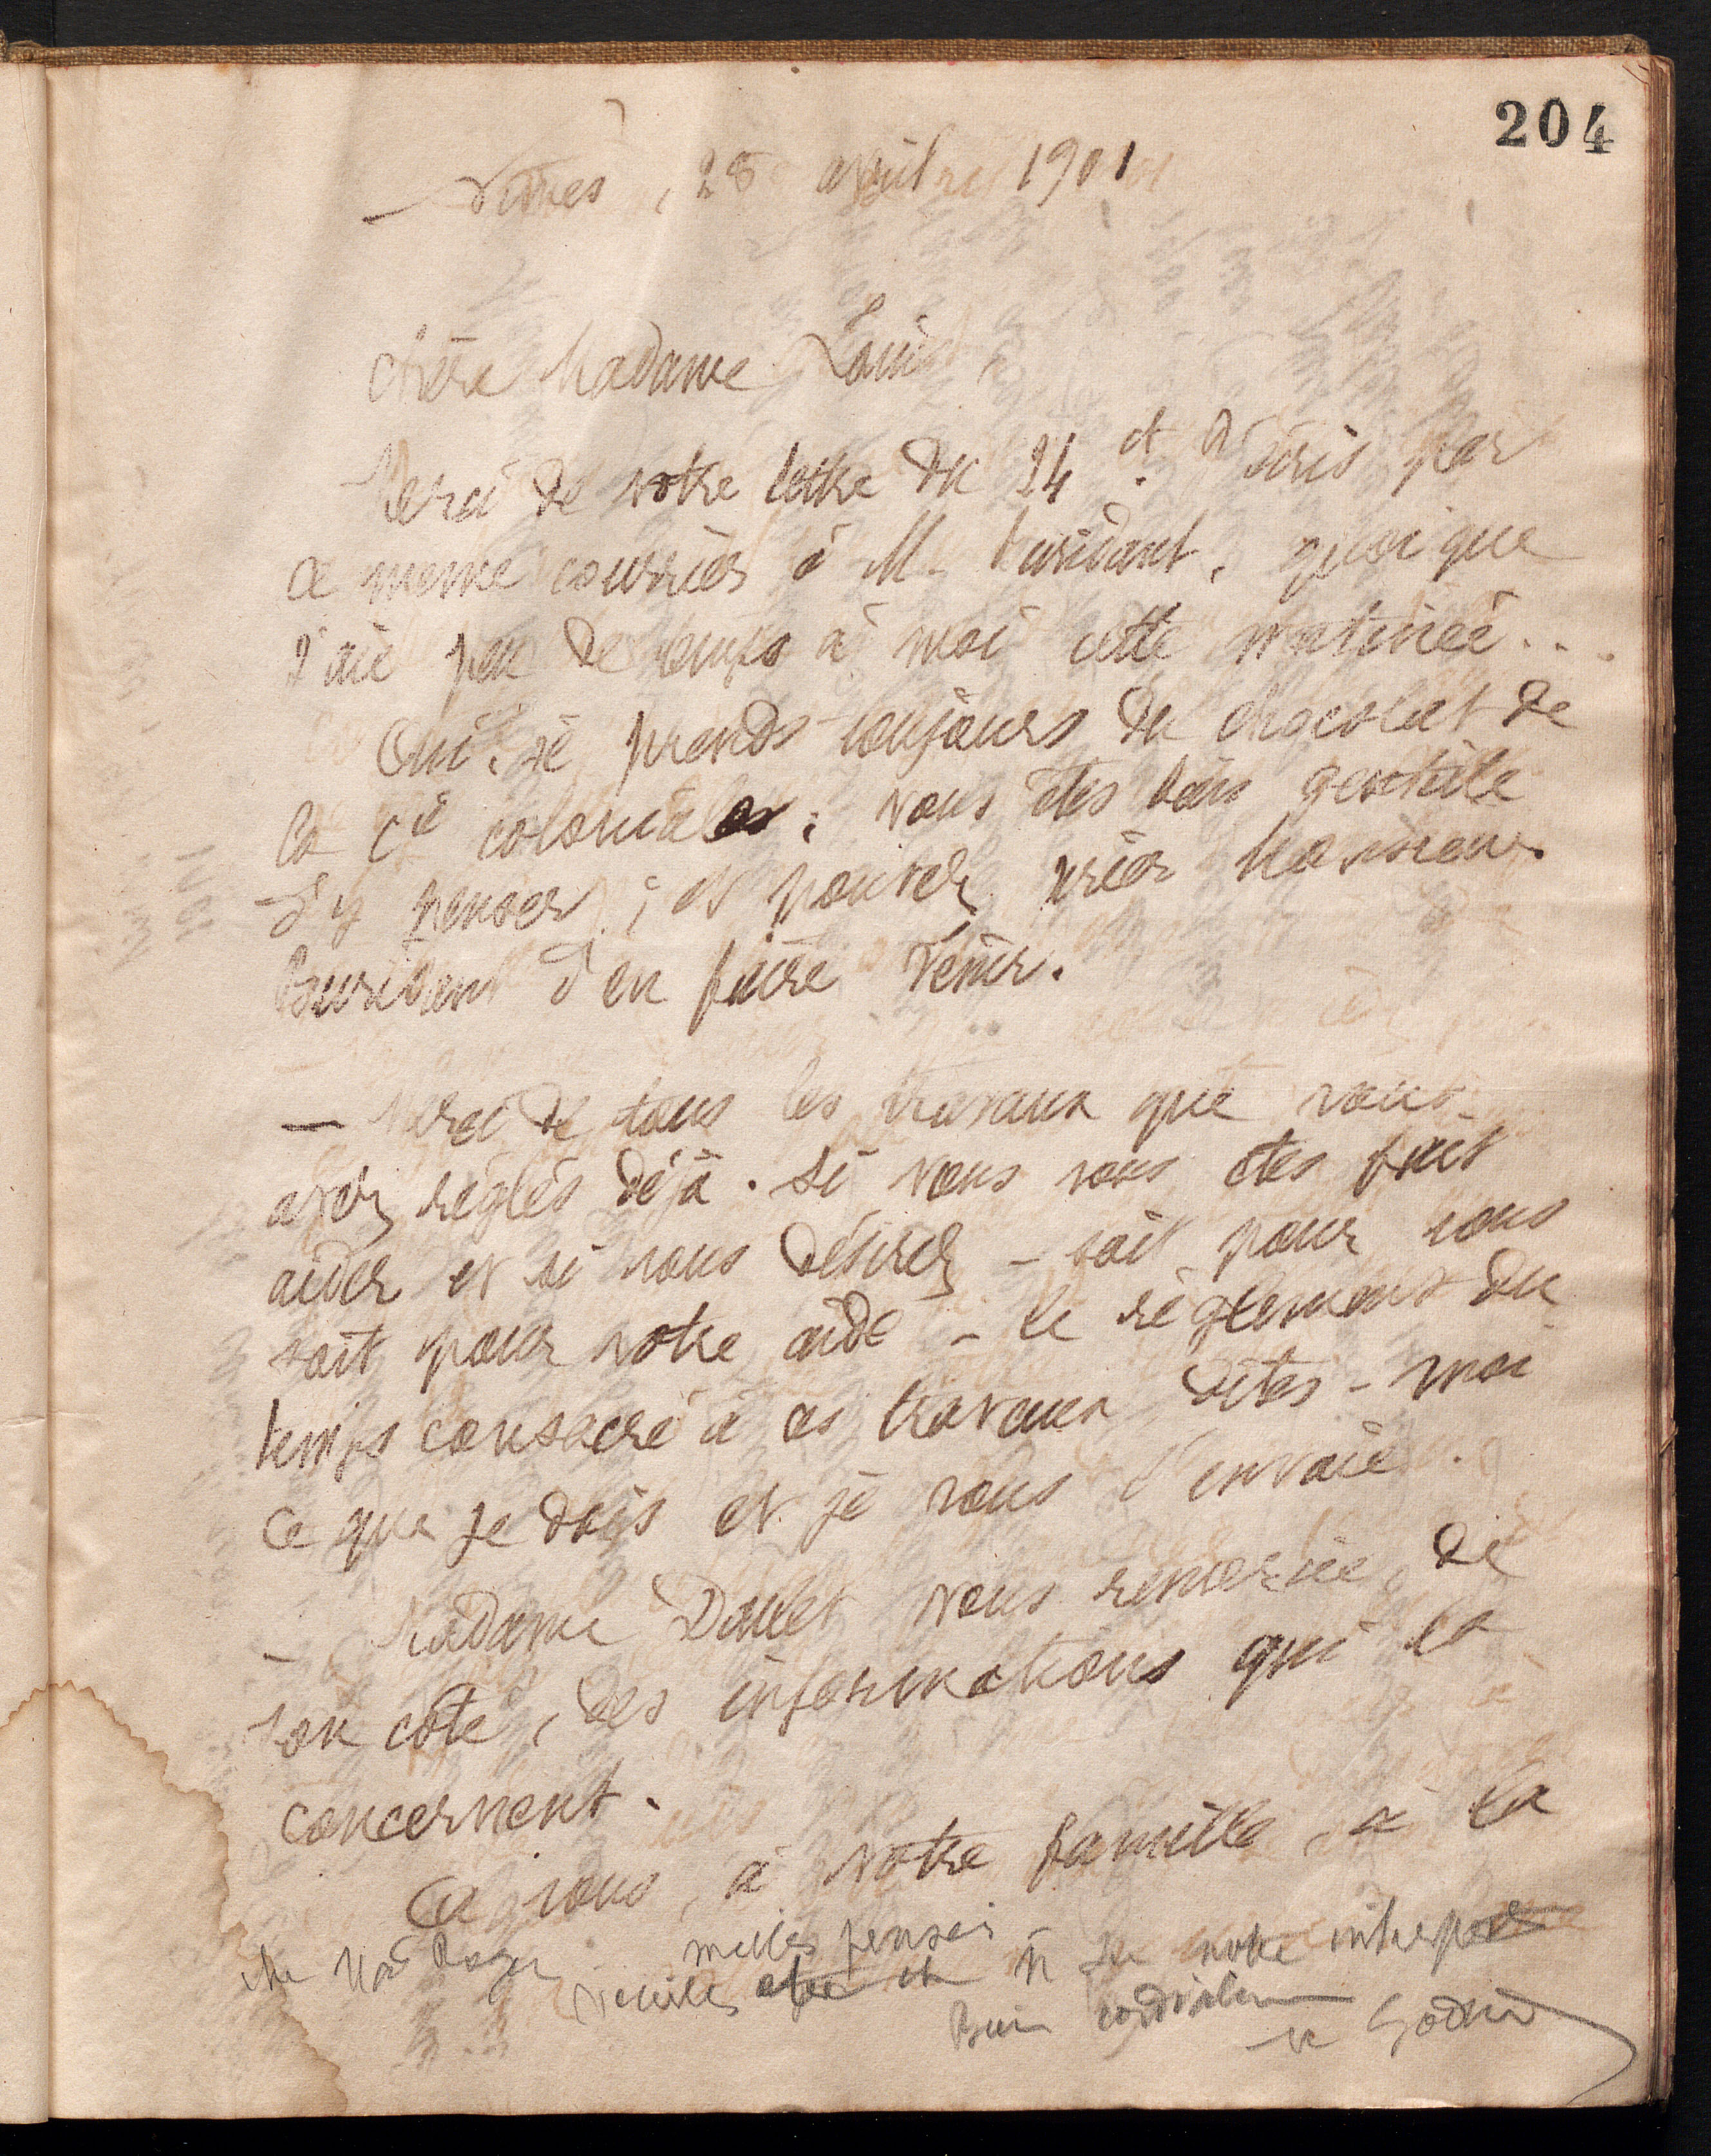 204
Nîmes, 28 avril 1901
Chère Madame Louis,
Merci de votre lettre du 24 ct. J'écris par
ce même courrier à M. Buridant, quoique
j'aie peu de temps à moi cette matinée...
Oui, je prends toujours du chocolat de
la Cie coloniale ; vous êtes bien gentille
d'y penser ; et pouvez prier Monsieur
Buridant d'en faire venir.
— Merci de tous les travaux que vous
avez réglés déjà. Si vous vous êtes fait
aider et si vous désirez - soit pour vous
soit pour votre aide - le règlement du
temps consacré à ces travaux dites-moi
ce que je dois et je vous l'envoie.
- Madame Dallet vous remercie, de
son côté, des informations qui la
concernent.
A vous, à votre famille, à la
che Mad Roger milles pensées
veuillez être notre interprète
Bien cordialement
M Godin